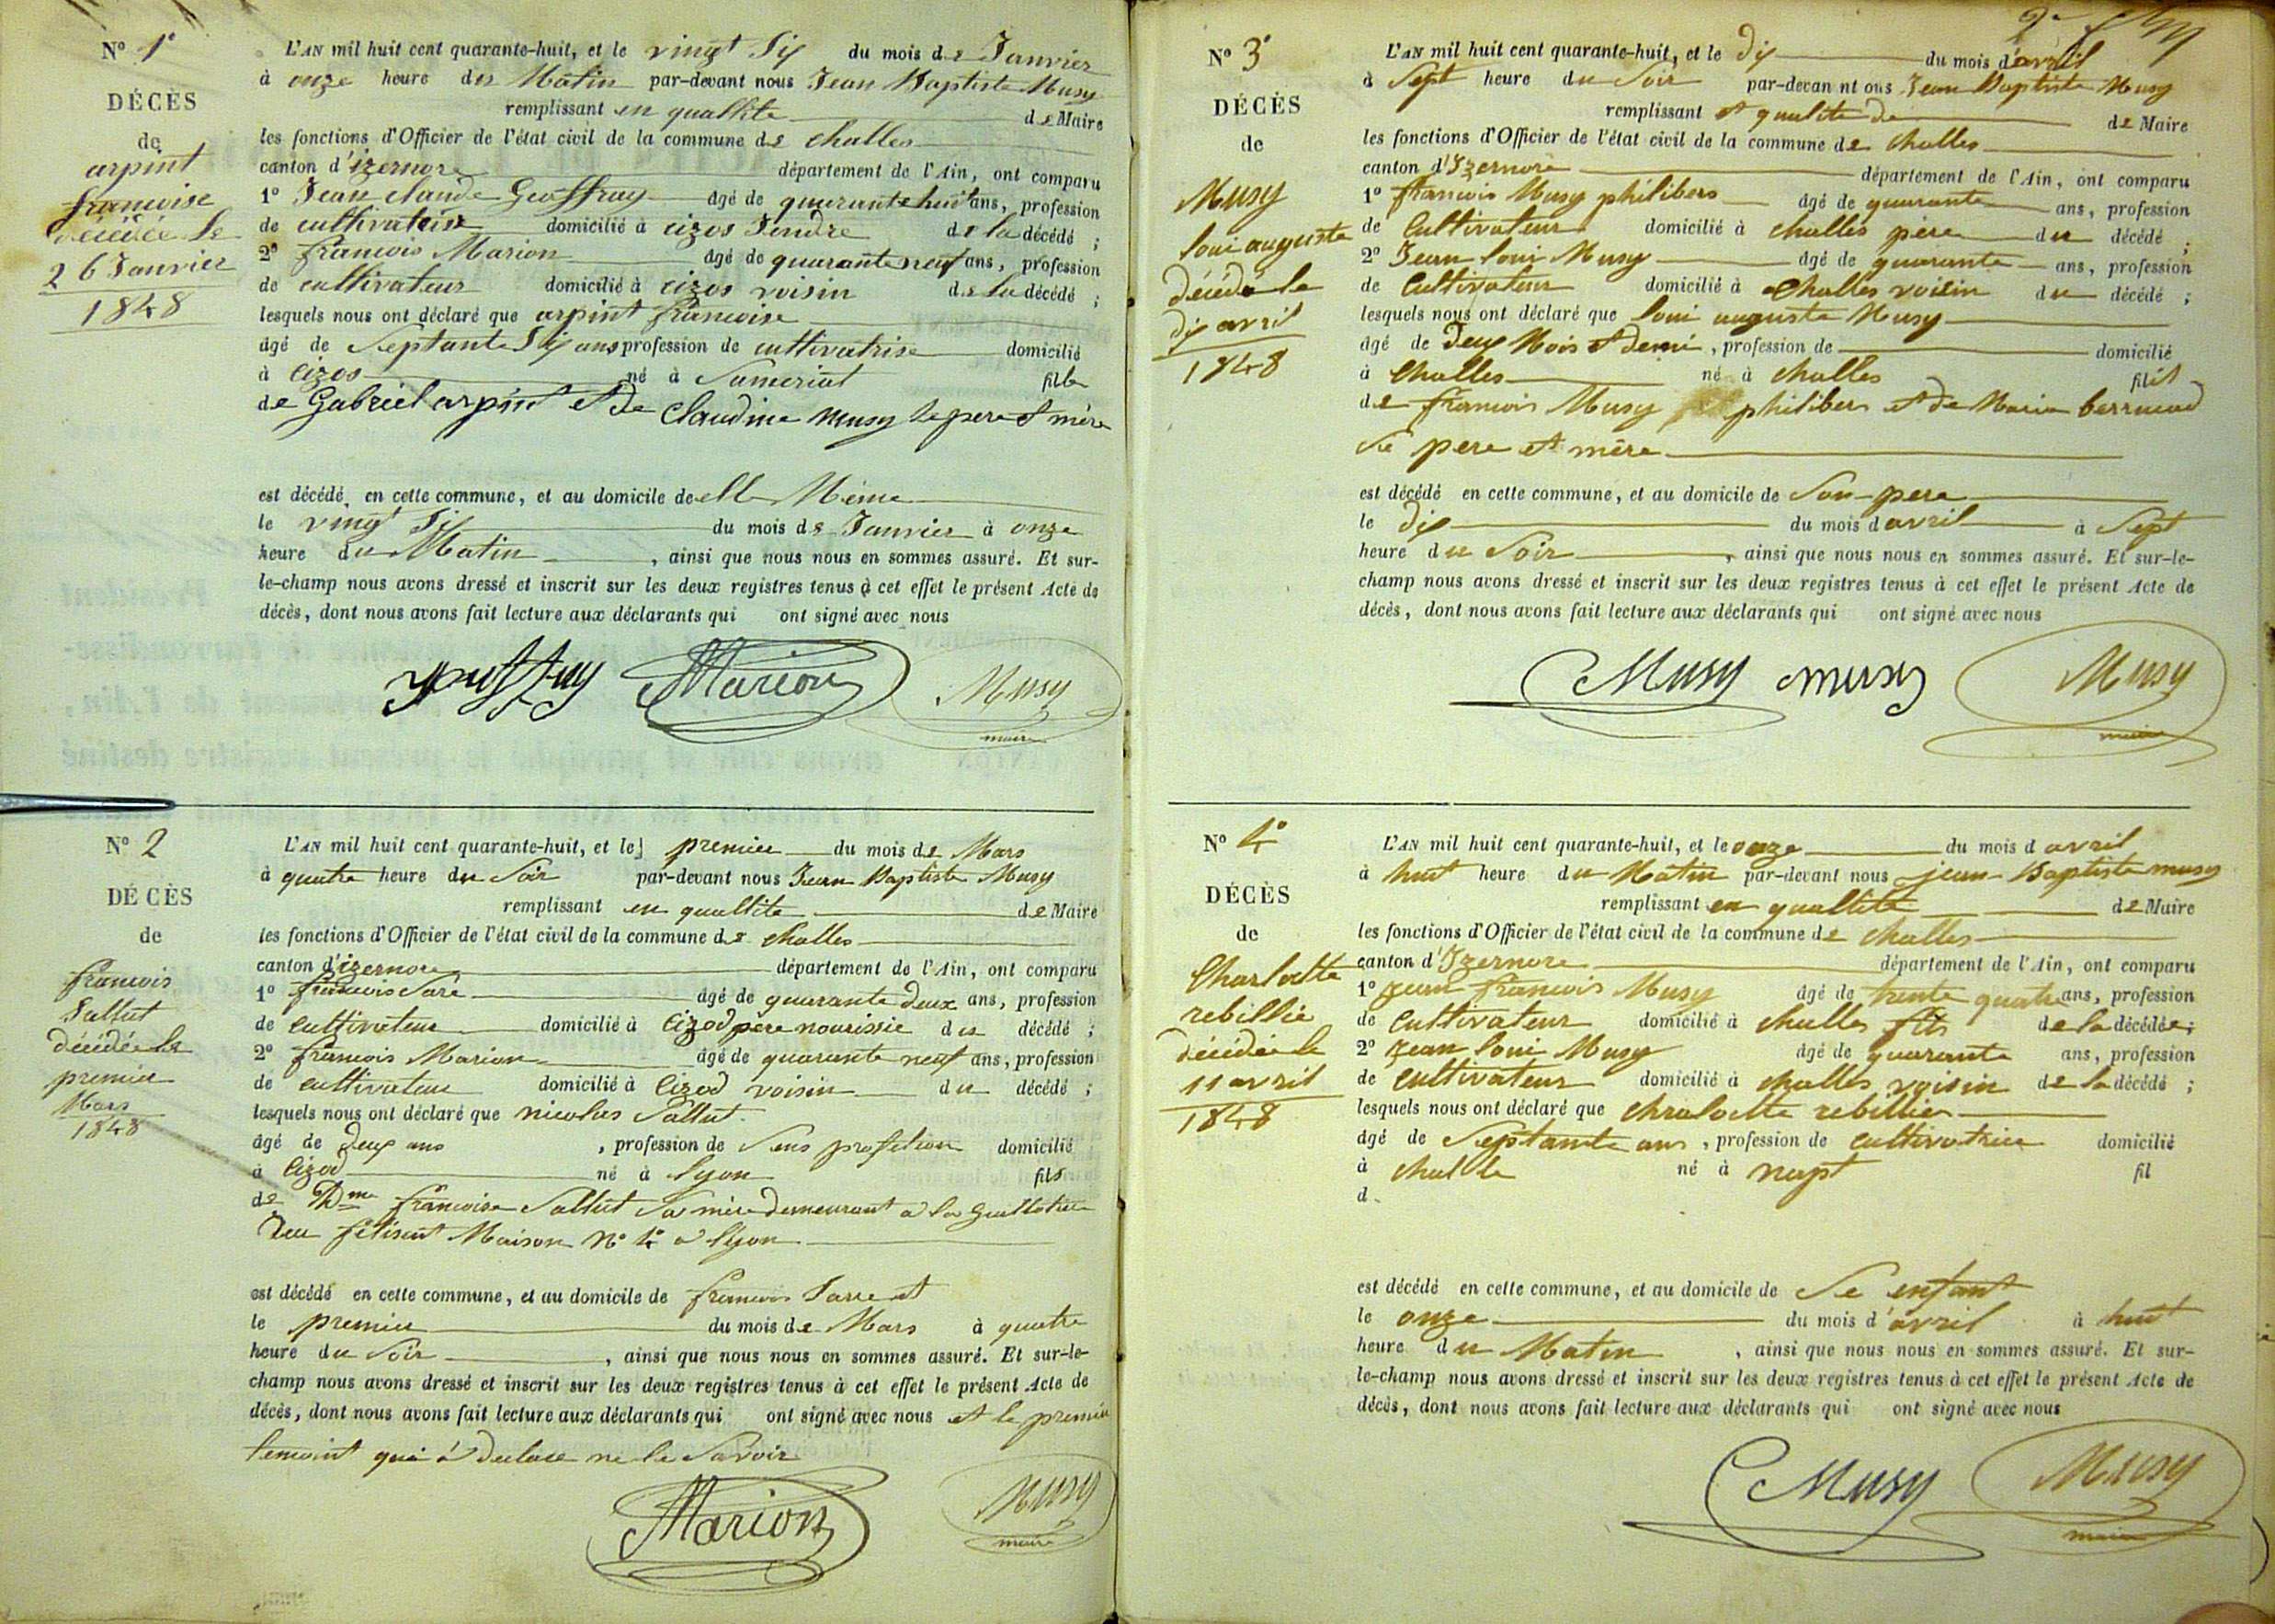 Nº 1º
DÉCÈS
de
arpint
francoise
décédée le
26 Janvier
1848
L'AN mil huit cent quarante-huit, et le vingt Six du mois de Janvier
à onze heure du Matin par-devant nous Jean Baptiste Musy
remplissant en quallite de Maire
les fonctions d'Officier de l'état civil de la commune de challes
canton d'izernore département de l'Ain, ont comparu
1º Jean claude Geoffray âgé de quarante huit ans, profession
de cultivatrise domicilié à cizos Jendre de la décédé ;
2º francois Marion âgé de quarante neuf ans, profession
de cultivateur domicilié à cizos voisin de la décédé ;
lesquels nous ont déclaré que arpint francoise
âgé de Septante Six ans profession de cultivatrise domicilié
à Cizos né à Samoriat fille
de Gabriel arpint et de Claudine Musy Se pere et mère
est décédé en cette commune, et au domicile de elle Même
le vingt Six du mois de Janvier à onze
heure du Matin , ainsi que nous nous en sommes assuré. Et sur-
le-champ nous avons dressé et inscrit sur les deux registres tenus à cet effet le présent Acte de
décès, dont nous avons fait lecture aux déclarants qui ont signé avec nous
Geoffray Marion Musy
maire
Nº 2
DÉCÈS
de
francois
Sallut
décédée le
premier
Mars
1848
L'AN mil huit cent quarante-huit, et le premier du mois de Mars
à quatre heure du Soir par-devant nous Jean Baptiste Musy
remplissant en quallite de Maire
les fonctions d'Officier de l'état civil de la commune de challes
canton d'izernore département de l'Ain, ont comparu
1º francois Sare âgé de quarante deux ans, profession
de cultivateur domicilié à Cizod père nourissie du décédé ;
2º francois Marion âgé de quarante neuf ans, profession
de cultivateur domicilié à Cizod voisin du décédé ;
lesquels nous ont déclaré que nicolas Sallut
âgé de deux ans , profession de Sens profetion domicilié
à Cizod né à lyon fils
de Dme francoise Sallut Sa mère demeurant a la Guillotiere
Rue felisent Maison Nº 4º a lyon
est décédé en cette commune, et au domicile de francois Sarre et
le premier du mois de Mars à quatre
heure du Soir , ainsi que nous nous en sommes assuré. Et sur-le-
champ nous avons dressé et inscrit sur les deux registres tenus à cet effet le présent Acte de
décès, dont nous avons fait lecture aux déclarants qui ont signé avec nous et le premier
temoint qui à declare ne le Savoir
Marion Musy
maire
Nº 3º
DÉCÈS
de
Musy
loui auguste
décédé le
dix avril
1848
L'AN mil huit cent quarante-huit, et le dix du mois d'avril
à Sept heure du Soir par-devan nt ous Jean Baptiste Musy
remplissant et qualite de de Maire
les fonctions d'Officier de l'état civil de la commune de challes
canton d'Izernore département de l'Ain, ont comparu
1º francois Musy philibers âgé de quarante ans, profession
de Cultivateur domicilié à challes père du décédé ;
2º Jean loui Musy âgé de quarante ans, profession
de Cultivateur domicilié à Challes voisin du décédé ;
lesquels nous ont déclaré que loui auguste Musy
âgé de deux Mois et demi , profession de domicilié
à Challes né à challes fils
de francois Musy philibers et de Marie berrucod
Se pere et mère
est décédé en cette commune, et au domicile de Son pere
le dix du mois d avril à Sept
heure du Soir , ainsi que nous nous en sommes assuré. Et sur-le-
champ nous avons dressé et inscrit sur les deux registres tenus à cet effet le présent Acte de
décès, dont nous avons fait lecture aux déclarants qui ont signé avec nous
Musy musy Musy
maire
Nº 4º
DÉCÈS
de
Charlotte
rebillie
décédée le
11 avril
1848
L'AN mil huit cent quarante-huit, et le onze du mois d avril
à huit heure du Matin par-devant nous jean Baptiste musy
remplissant en quallité de Maire
les fonctions d'Officier de l'état civil de la commune de challes
canton d'Izernore département de l'Ain, ont comparu
1º jean francois Musy âgé de trente quatre ans, profession
de Cultivateur domicilié à challes fils de la décédée ;
2º jean loui Musy âgé de quarante ans, profession
de cultivateur domicilié à challes voisin de la décédé ;
lesquels nous ont déclaré que chralotte rebillier
âgé de Septante ans , profession de cultivatrice domicilié
à challe né à napt fil
d
est décédé en cette commune, et au domicile de Se enfant
le onze du mois d'avril à huit
heure du Matin , ainsi que nous nous en sommes assuré. Et sur-
le-champ nous avons dressé et inscrit sur les deux registres tenus à cet effet le présent Acte de
décès, dont nous avons fait lecture aux déclarants qui ont signé avec nous
Musy Musy
maire